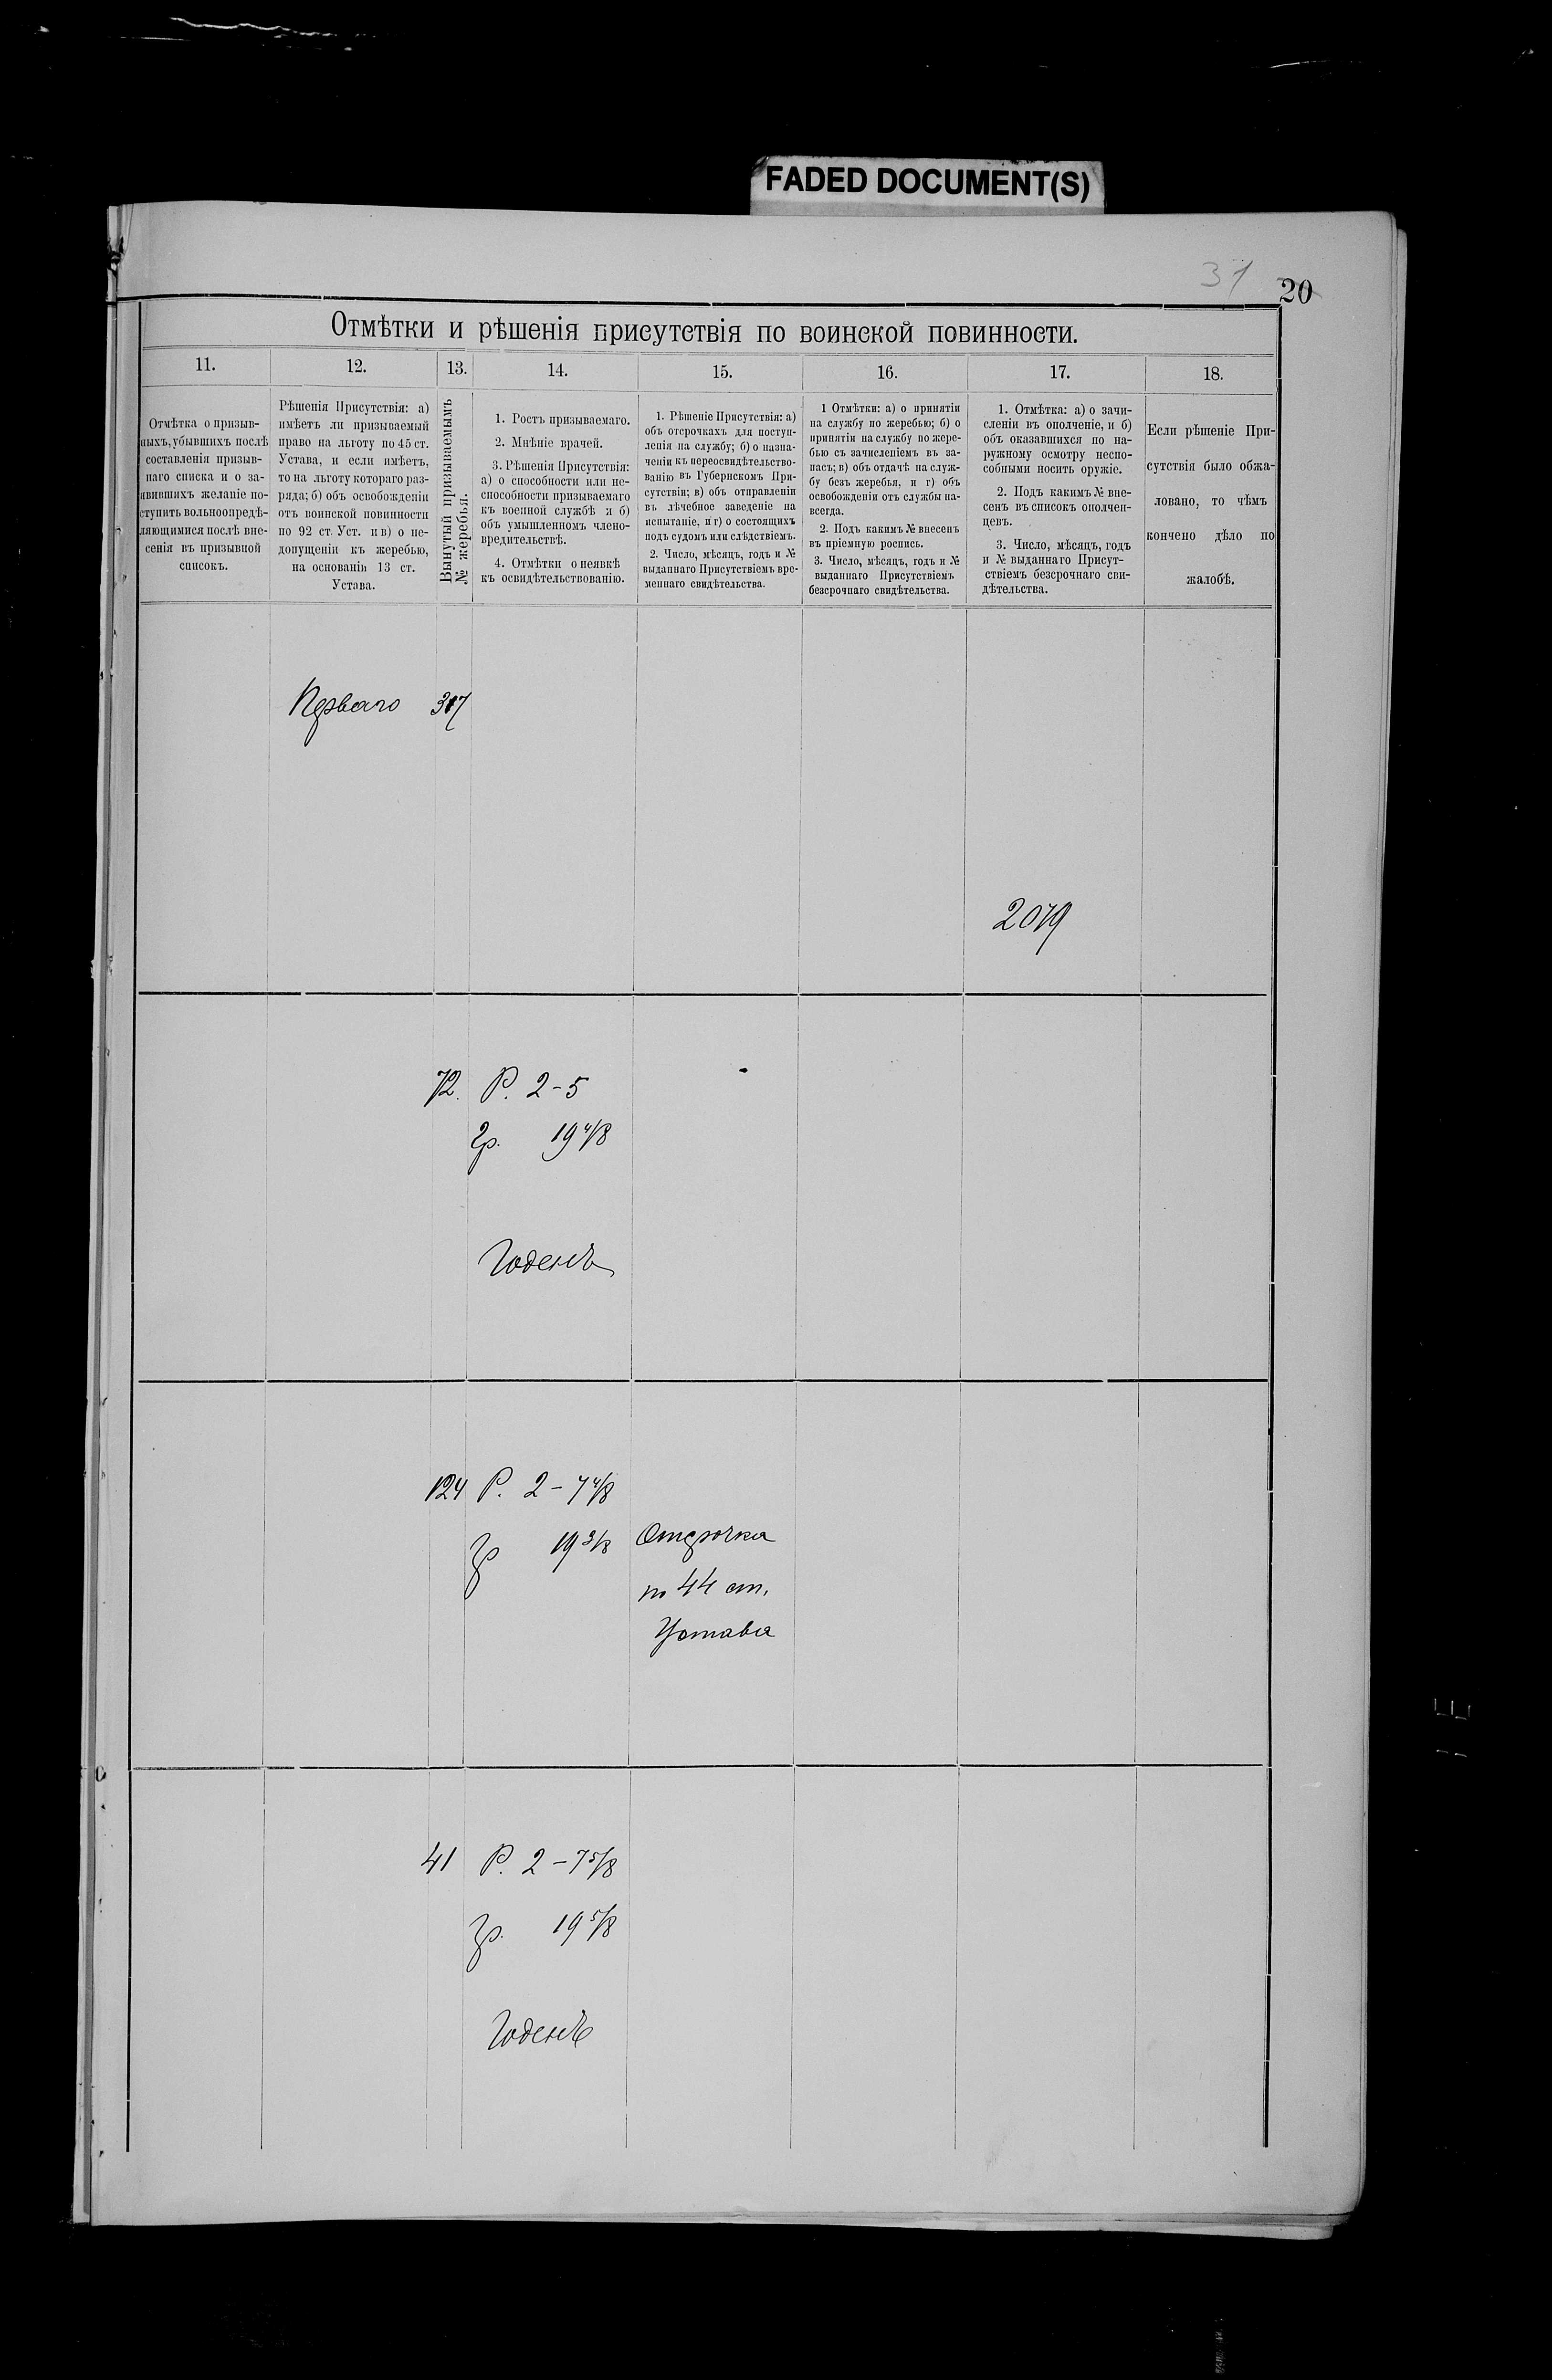 FADED DOCUMENT(S)
31
20
Отмѣтки и рѣшенія присутствія по воинской повинности.
11.
12.
13.
14.
15.
16.
17.
18.
Отмѣтка о призыв-
ныхъ, убывшихъ послѣ
составленія призыв-
наго списка и о за-
явившихъ желаніе по-
ступить вольноопредѣ-
ляющимися послѣ вне-
сенія въ призывной
списокъ.
Рѣшенія Присутствія: а)
имѣетъ ли призываемый
право на льготу по 45 ст.
Устава, и если имѣетъ,
то на льготу котораго раз-
ряда; б) объ освобожденіи
отъ воинской повинности
по 92 ст. Уст. и в) о не-
допущеніи къ жеребью,
на основаніи 13 ст.
Устава.
Вынутый призываемымъ
№ жеребья.
1. Ростъ призываемаго.
2. Мнѣніе врачей.
3. Рѣшенія Присутствія:
а) о способности или не-
способности призываемаго
къ военной службѣ и б)
объ умышленномъ члено-
вредительствѣ.
4. Отмѣтки о неявкѣ
къ освидѣтельствованію.
1. Рѣшеніе Присутствія: а)
объ отсрочкахъ для поступ-
ленія на службу; б) о назна-
ченіи къ переосвидѣтельство-
ванію въ Губернскомъ При-
сутствіи; в) объ отправленіи
въ лѣчебное заведеніе на
испытаніе, и г) о состоящихъ
подъ судомъ или слѣдствіемъ.
2. Число, мѣсяцъ, годъ и №
выданнаго Присутствіемъ вре-
меннаго свидѣтельства.
1 Отмѣтки: а) о принятіи
на службу по жеребью; б) о
принятіи на службу по жере-
бью съ зачисленіемъ въ за-
пасъ; в) объ отдачѣ на служ-
бу безъ жеребья, и г) объ
освобожденіи отъ службы на-
всегда.
2. Подъ какимъ № внесенъ
въ пріемную роспись.
3. Число, мѣсяцъ, годъ и №
выданнаго Присутствіемъ
безсрочнаго свидѣтельства.
1. Отмѣтка: а) о зачи-
сленіи въ ополченіе, и б)
объ оказавшихся по на-
ружному осмотру неспо-
собными носить оружіе.
2. Подъ какимъ № вне-
сенъ въ списокъ ополчен-
цевъ.
3. Число, мѣсяцъ, годъ
и № выданнаго Присут-
ствіемъ безсрочнаго сви-
дѣтельства.
Если рѣшеніе При-
сутствія было обжа-
ловано, то чѣмъ
кончено дѣло по
жалобѣ.
Перваго 317
2079
72. Р. 2-5
Гр. 19 4/8
Годенъ
124 Р. 2-7 4/8
Гр 19 3/8
Отсрочка
по 44 ст.
Устава
41 Р. 2-7 5/8
Гр. 19 5/8
Годенъ